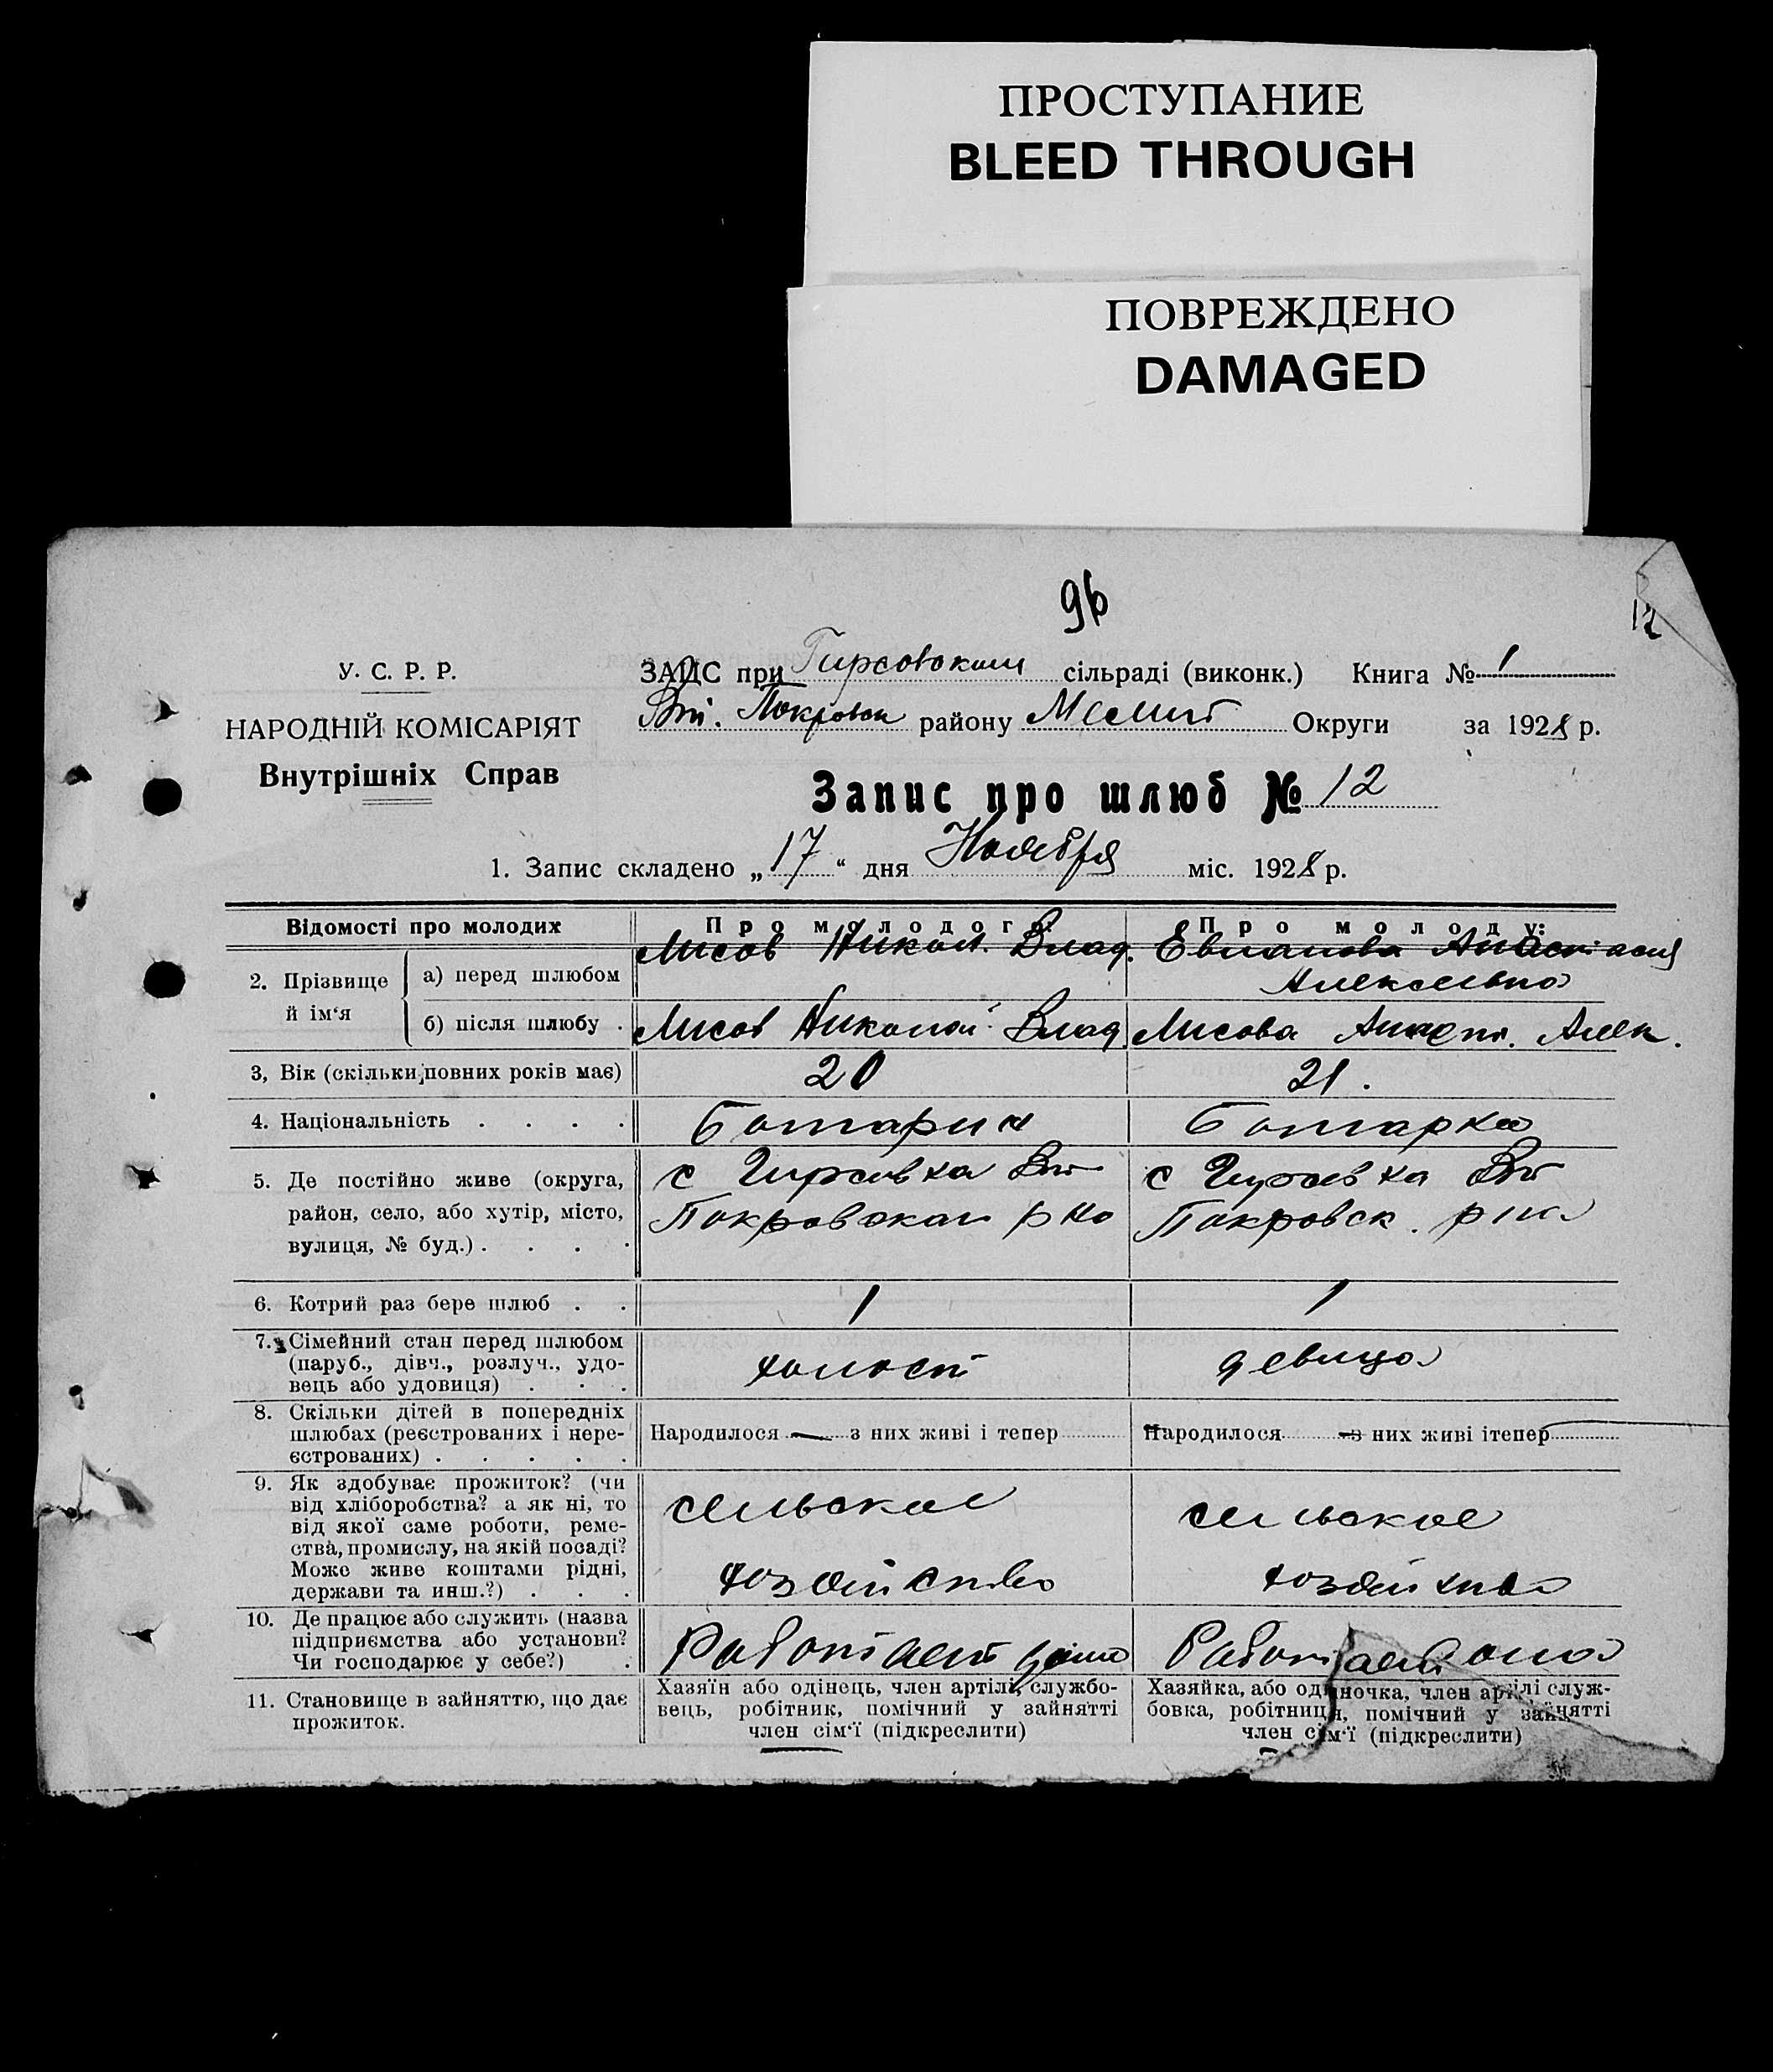 ПРОСТУПАНИЕ
BLEED THROUGH
ПОВРЕЖДЕНО
DAMAGED
96
12
У. С. Р. Р.
НАРОДНІЙ КОМІСАРІЯТ
Внутрішніх Справ
ЗАЦС при Гирсовском сільраді (виконк.) Книга № 1
Вт. Покровск району Мелит Округи за 1928 р.
Запис про шлюб № 12
1. Запис складено „17“ дня Ноября міс. 1928 р.
Відомості про молодих Про молодого Про молоду:
2. Прізвище й ім‘я а) перед шлюбом Лисов Никол. Влад. Анастасия
Алексеевна
б) після шлюбу . Лисов Николай Влад. Лисова Анаст. Алек.
3, Вік (скільки повних років має) 20 21.
4. Національність . . . . Болгарин Болгарка
5. Де постійно живе (округа, с Гирсовка Вт с Гирсовка Вт
район, село, або хутір, місто, Покровском р на Покровск. р на
вулиця, № буд.) . . . .
6. Котрий раз бере шлюб . . 1 1
7. Сімейний стан перед шлюбом
(паруб., дівч., розлуч., удо- холост девица
вець або удовиця) . . .
8. Скільки дітей в попередніх
шлюбах (реєстрованих і нере- Народилося — з них живі і тепер Народилося — з них живі ітепер
єстрованих) . . . . .
9. Як здобуває прожиток? (чи
від хліборобства? а як ні, то сельское сельское
від якої саме роботи, реме-
ства, промислу, на якій посаді?
Може живе коштами рідні, хозяйство хозяйство
держави та инш.?) . . .
10. Де працює або служить (назва
підприємства або установи? Работает дома Работает дома
Чи господарює у себе?) .
11. Становище в зайняттю, що дає прожиток.
Хазяїн або одінець, член артілі, службо-
вець, робітник, помічний у зайнятті
член сім‘ї (підкреслити)
Хазяйка, або одиночка, член артілі служ-
бовка, робітниця, помічний у зайнятті
член сім‘ї (підкреслити)